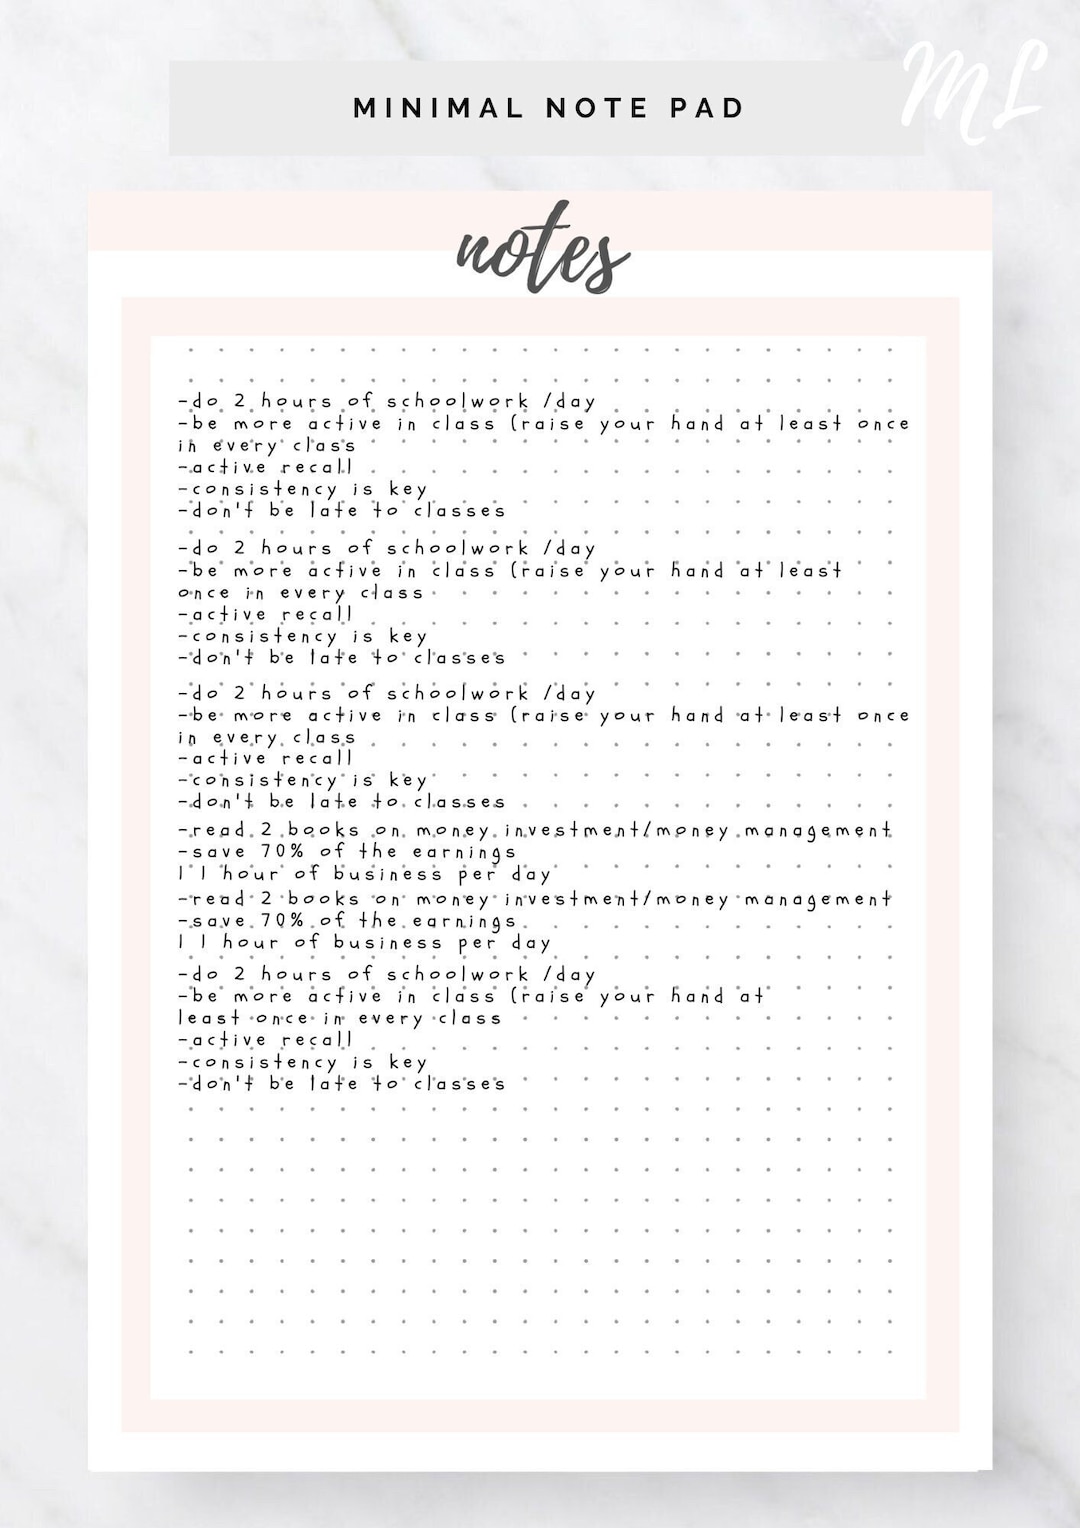 ML
MINIMAL NOTE PAD
notes
-do 2 hours of schoolwork /day
-be more active in class (raise your hand at least once
in every class
-active recall
-consistency is key
-don't be late to classes
-do 2 hours of schoolwork /day
-be more active in class (raise your hand at least
once in every class
-active recall
-consistency is key
-don't be late to classes
-do 2 hours of schoolwork /day
-be more active in class (raise your hand at least once
in every class
-active recall
-consistency is key
-don't be late to classes
-read 2 books on money investment/money management
-save 70% of the earnings
| 1 hour of business per day
-read 2 books on money investment/money management
-save 70% of the earnings
| 1 hour of business per day
-do 2 hours of schoolwork /day
-be more active in class (raise your hand at
least once in every class
-active recall
-consistency is key
-don't be late to classes